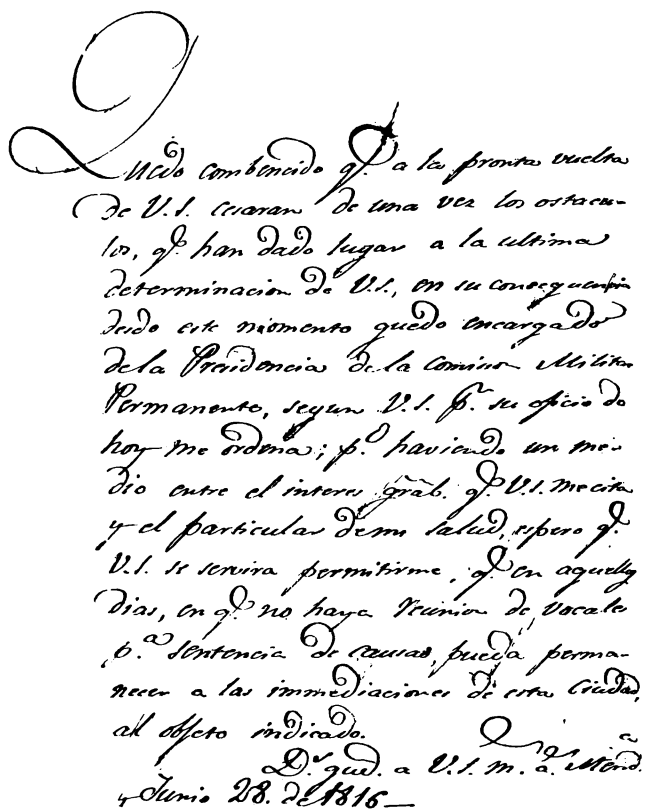 Quedo combencido q.e a la pronta vuelta
de V.S. cesaran de una vez los ostacu-
los, q.e han dado lugar a la ultima
determinacion de V.S., en su consequencia
desde este momento quedo encargado
de la Presidencia de la Comision Militar
Permanente, segun V.S. p.r su oficio de
hoy me ordena; p.o haviendo un me-
dio entre el interes gral. q.e V.S. me cita
y el particular de mi salud, espero q.e
V.S. se servira permitirme, q.e en aquellos
dias, en q.e no haya reunion de vocales
p.a sentencia de causas, pueda perma-
necer a las immediaciones de esta Ciudad,
al objeto indicado.
D.s gue. a V.S. m. a.s Mend.a
y Junio 28. de 1816